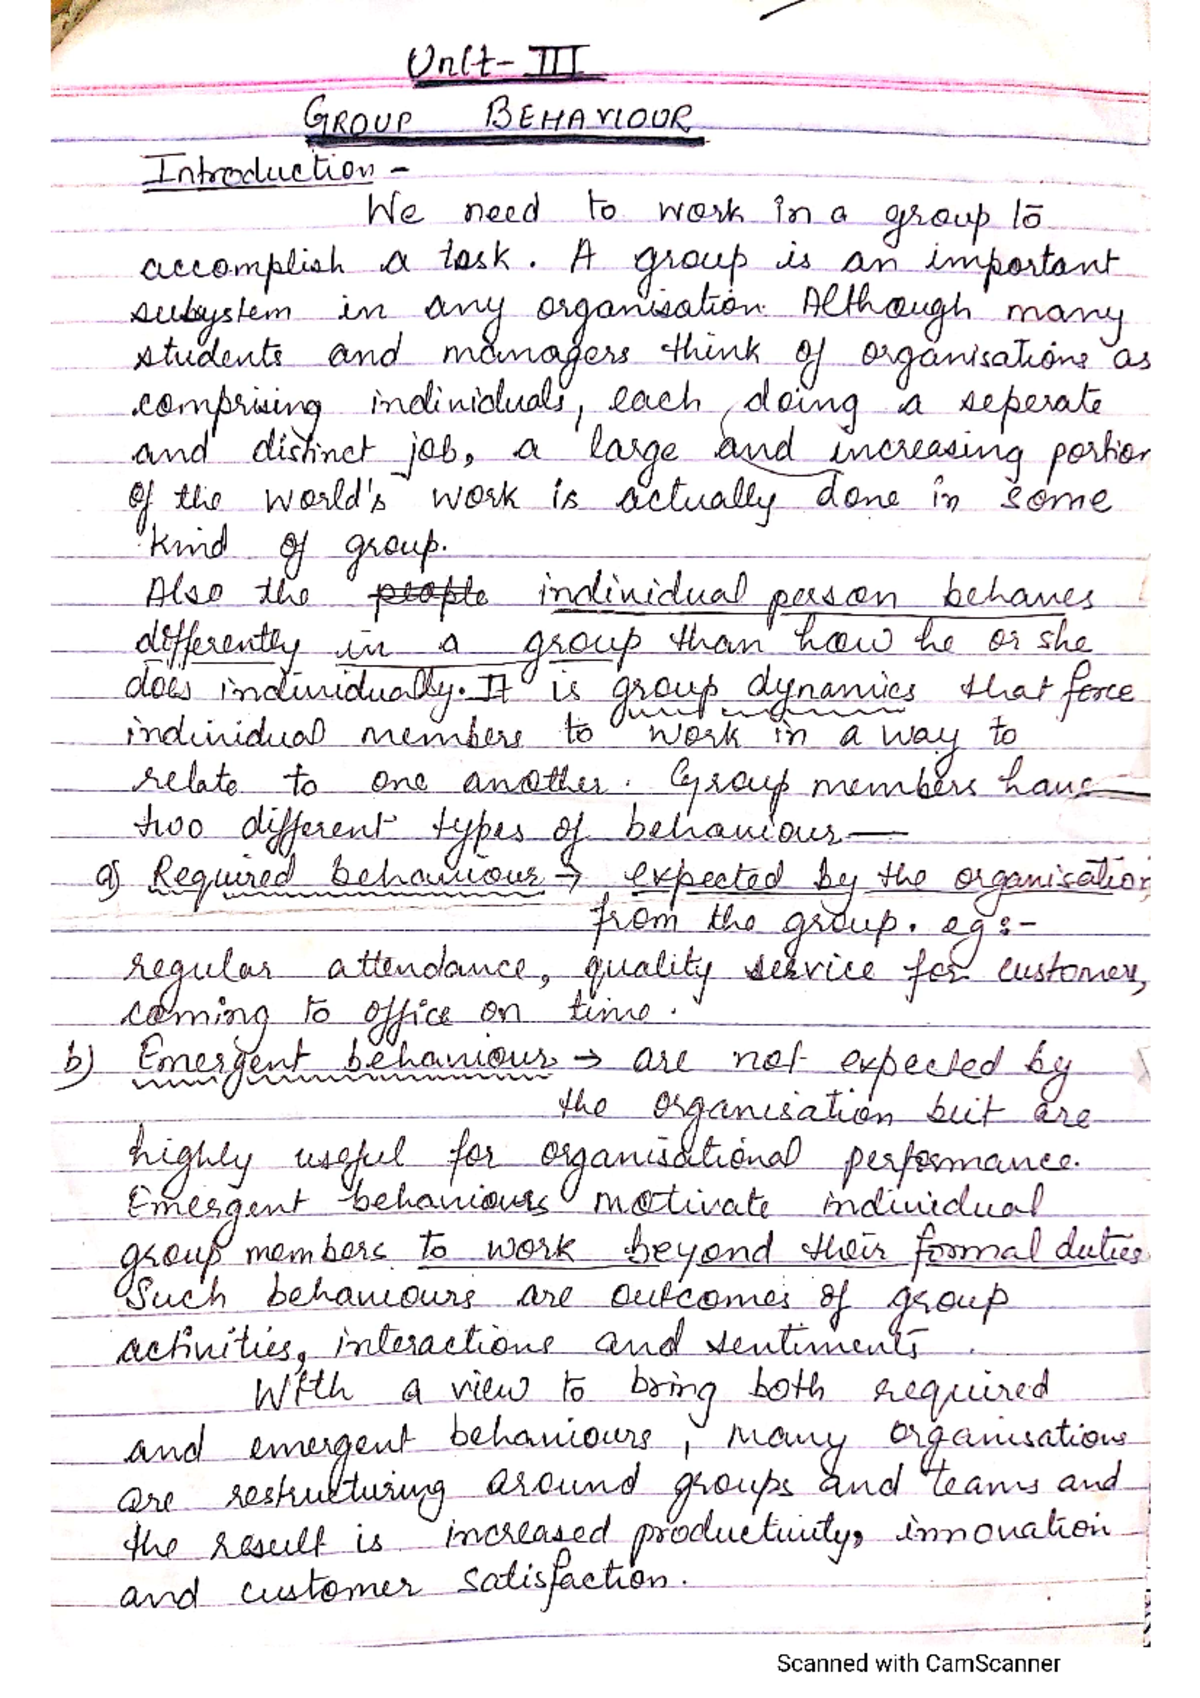 Unit- III
GROUP BEHAVIOUR
Introduction -
We need to work in a group to
accomplish a task. A group is an important
subystem in any organisation. Although many
students and managers think of organisations as
comprising individuals, each doing a seperate
and distinct job, a large and increasing portion
of the world's work is actually done in some
kind of group.
Also the people individual person behaves
differently in a group than how he or she
does individually. It is group dynamics that force
individual members to work in a way to
relate to one another. Group members have
two different types of behaviour —
a) Required behaviour → expected by the organisation
from the group. eg :-
regular attendance, quality service for customers,
coming to office on time.
b) Emergent behaviour → are not expected by
the organisation but are
highly useful for organisational performance.
Emergent behaviours motivate individual
group members to work beyond their formal duties
Such behaviours are outcomes of group
activities, interactions and sentiments.
With a view to bring both required
and emergent behaviours, many organisations
are restructuring around groups and teams and
the result is increased productivity, innovation
and customer satisfaction.
Scanned with CamScanner